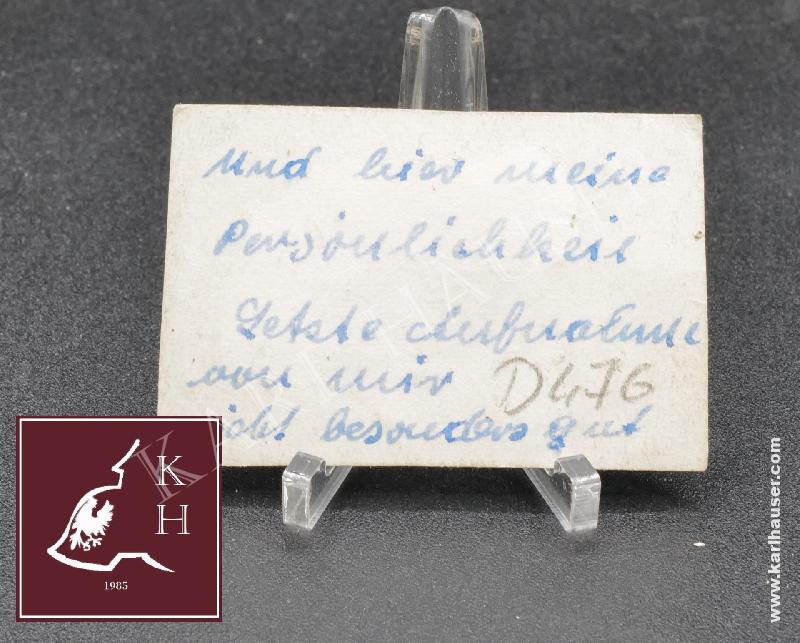 Und hier meine
Persönlichkeit
Letzte Aufnahme
von mir
D476
nicht besonders gut
KARL HAUSER
K
H
1985
www.karlhauser.com